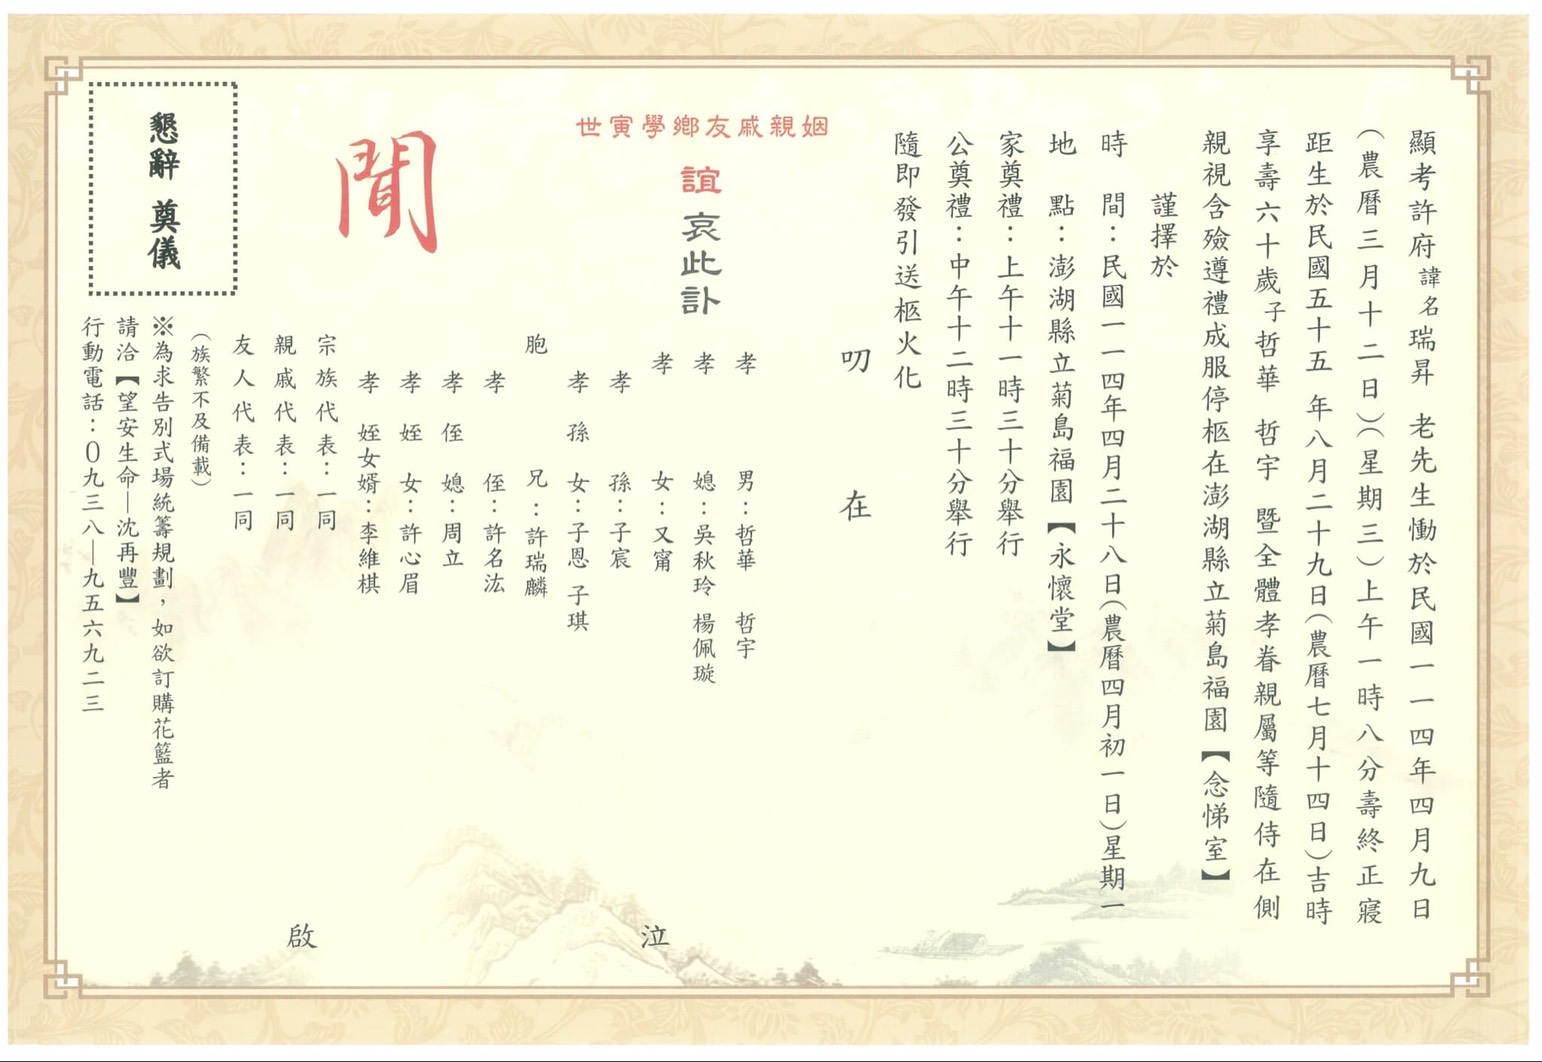 顯考許府諱名瑞昇 老先生慟於民國一一四年四月九日
（農曆三月十二日）（星期三）上午一時八分壽終正寢
距生於民國五十五年八月二十九日（農曆七月十四日）吉時
享壽六十歲子哲華 哲宇 暨全體孝眷親屬等隨侍在側
親視含殮遵禮成服停柩在澎湖縣立菊島福園【念悌室】
謹擇於
時 間：民國一一四年四月二十八日（農曆四月初一日）星期一
地 點：澎湖縣立菊島福園【永懷堂】
家奠禮：上午十一時三十分舉行
公奠禮：中午十二時三十分舉行
隨即發引送柩火化
叨 在
姻親戚友鄉學寅世
誼 哀此訃
聞
孝 男：哲華 哲宇
孝 媳：吳秋玲 楊佩璇
孝 女：又甯
孝 孫：子宸
孝 孫 女：子恩 子琪
胞 兄：許瑞麟
孝 侄：許名汯
孝 侄 媳：周立
孝 姪 女：許心眉
孝 姪女婿：李維棋
宗族代表：一同
親戚代表：一同
友人代表：一同
（族繁不及備載）
泣 啟
懇辭 奠儀
※為求告別式場統籌規劃，如欲訂購花籃者
請洽【望安生命—沈再豐】
行動電話：０九三八—九五六九二三